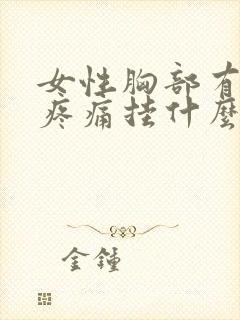 女性胸部有
疼痛挂什麼
金鍾